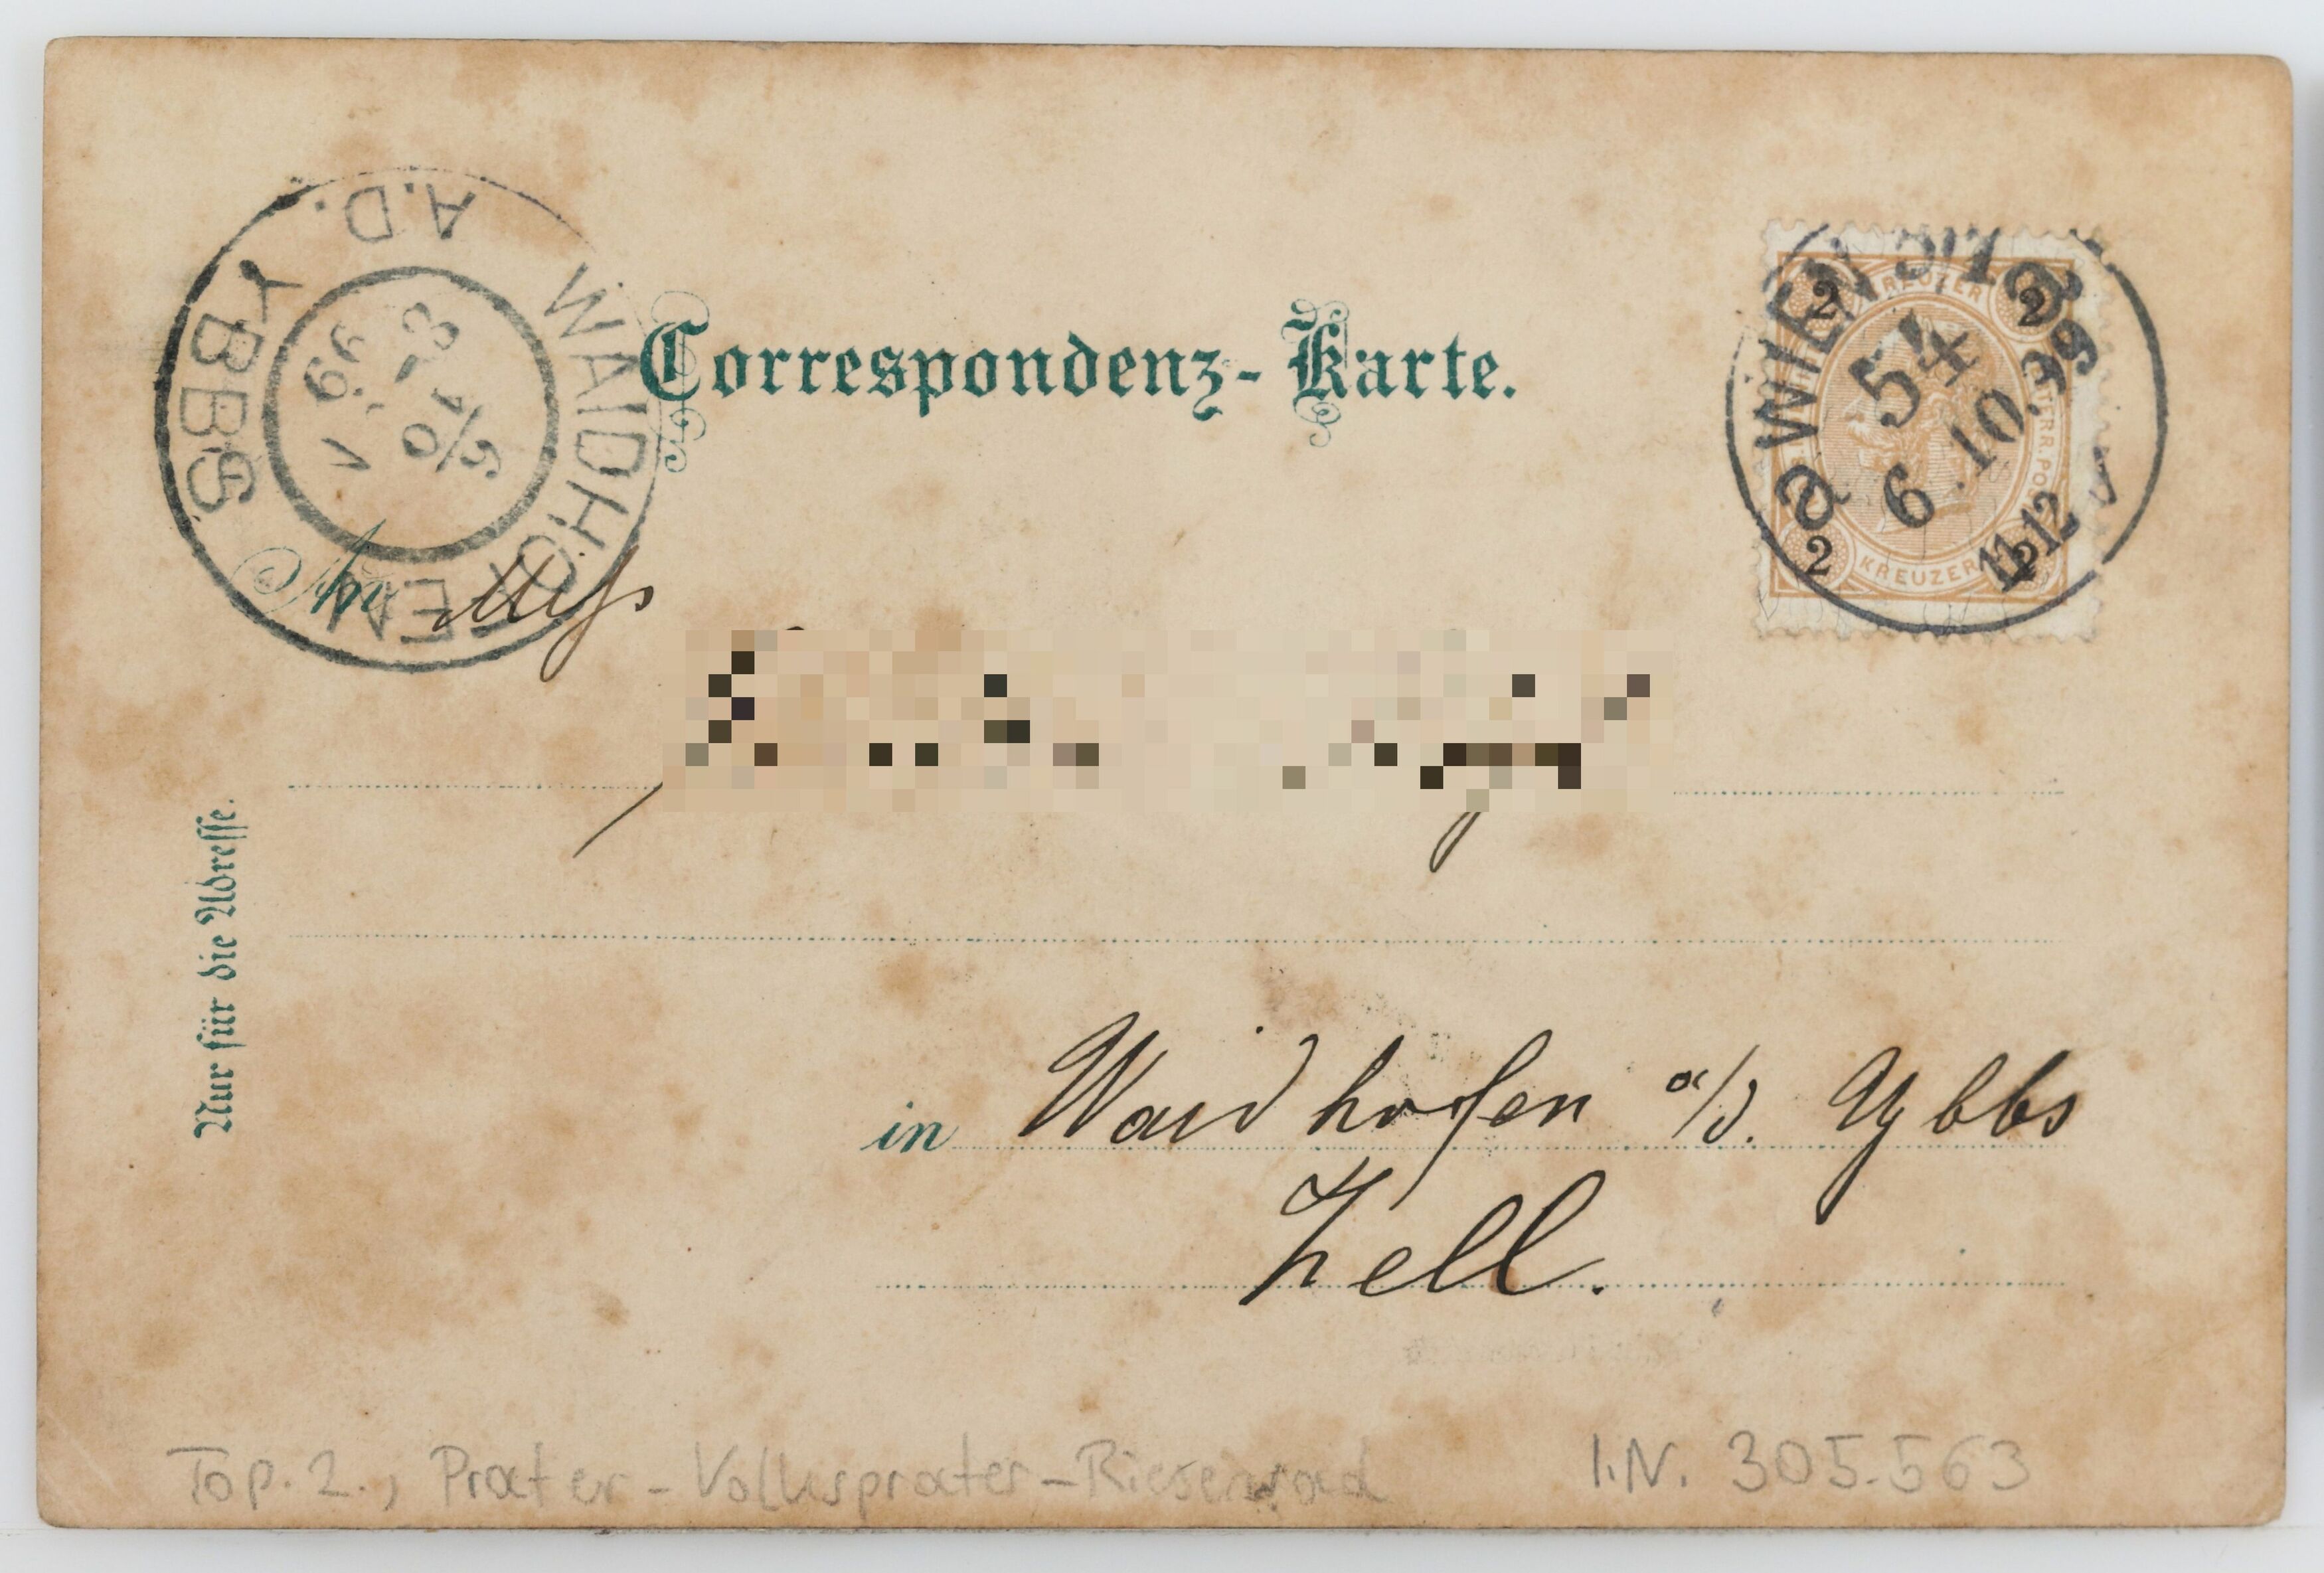 WAIDHOFEN
A.D. YBBS
Correspondenz-Karte.
WIEN
54
6.10.99
11-12
KREUZER
2 2
2 2
KREUZER
An Miss
Nur für die Adresse.
in Waidhofen a/d. Ybbs
Zell.
Top. 2., Prater-Volksprater-Riesenrad
I.N. 305.563